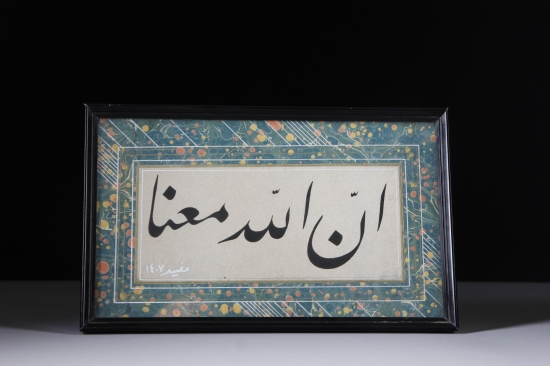 انّ اللّه معنا
مفيد ١٤٠٧